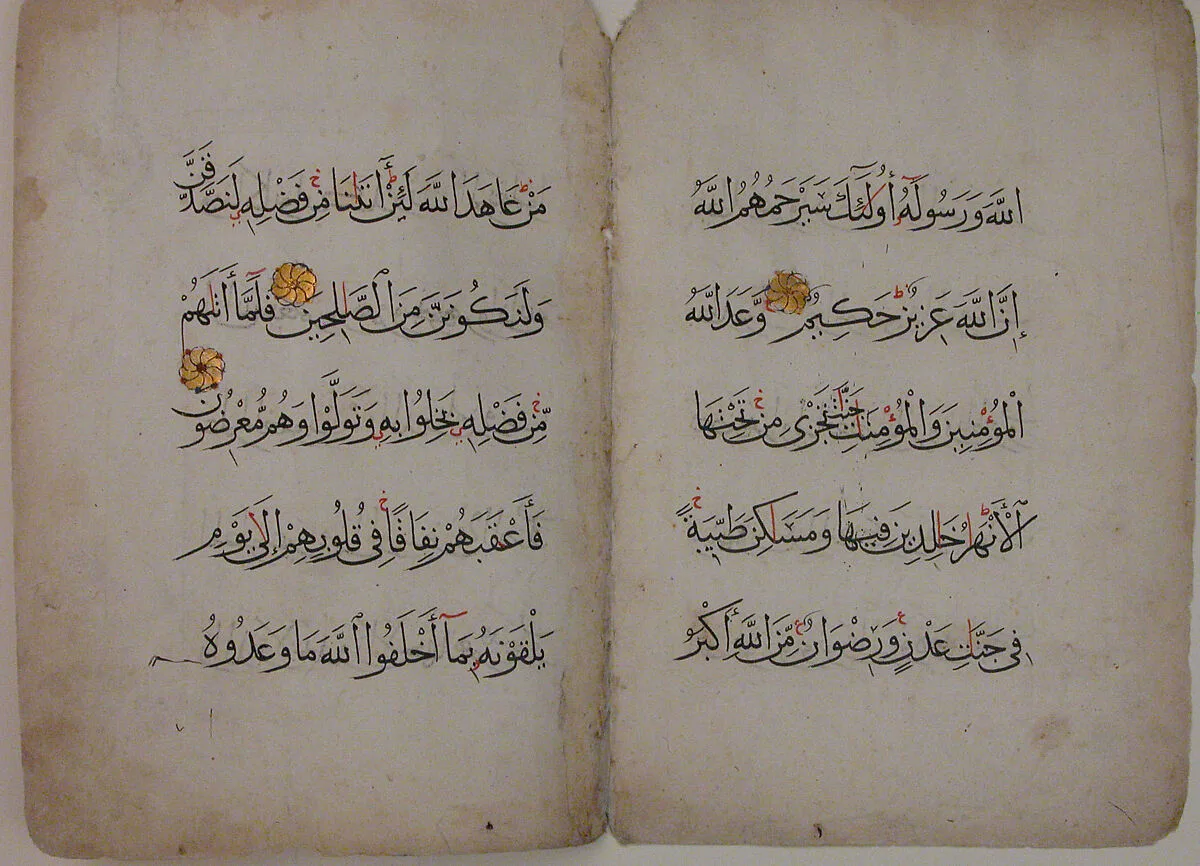 اللَّهَ وَرَسُولَهُ أُولَٰئِكَ سَيَرْحَمُهُمُ اللَّهُ
إِنَّ اللَّهَ عَزِيزٌ حَكِيمٌ وَعَدَ اللَّهُ
الْمُؤْمِنِينَ وَالْمُؤْمِنَٰتِ جَنَّٰتٍ تَجْرِى مِن تَحْتِهَا
الْأَنْهَٰرُ خَٰلِدِينَ فِيهَا وَمَسَٰكِنَ طَيِّبَةً
فِى جَنَّٰتِ عَدْنٍ وَرِضْوَانٌ مِّنَ اللَّهِ أَكْبَرُ
مَّنْ عَاهَدَ اللَّهَ لَئِنْ ءَاتَىٰنَا مِن فَضْلِهِ لَنَصَّدَّقَنَّ
وَلَنَكُونَنَّ مِنَ الصَّٰلِحِينَ فَلَمَّا أَتَىٰهُمْ
مِّن فَضْلِهِ بَخِلُوا بِهِ وَتَوَلَّوْا وَهُم مُّعْرِضُونَ
فَأَعْقَبَهُمْ نِفَاقًا فِى قُلُوبِهِمْ إِلَىٰ يَوْمِ
يَلْقَوْنَهُ بِمَا أَخْلَفُوا اللَّهَ مَا وَعَدُوهُ